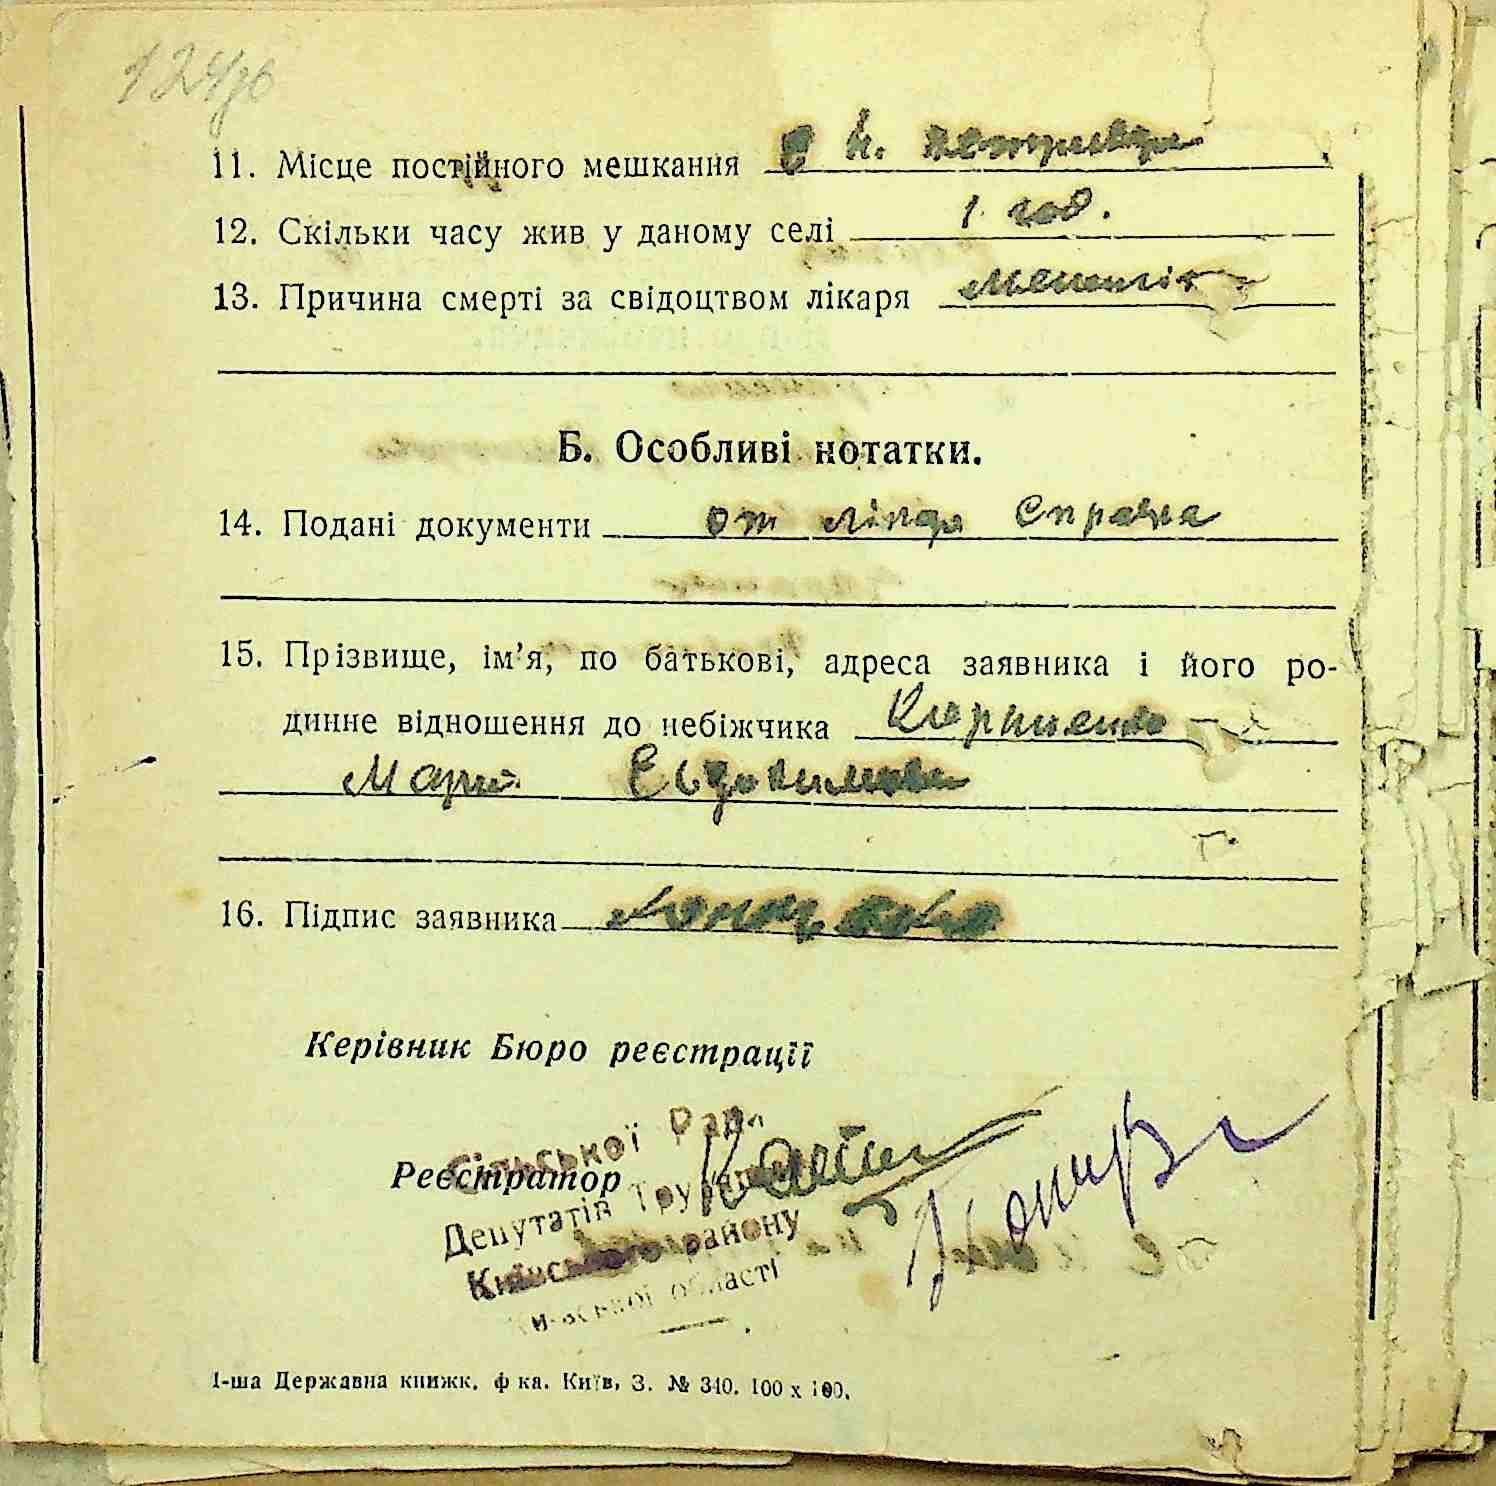 11. Місце постійного мешкання с Н. Петрівці
12. Скільки часу жив у даному селі 1 год.
13. Причина смерті за свідоцтвом лікаря
Б. Особливі нотатки.
14. Подані документи от лікаря Справка
15. Прізвище, ім’я, по батькові, адреса заявника і його ро-
динне відношення до небіжчика
Марія
16. Підпис заявника
Керівник Бюро реєстрації
Сільської Ради
Реєстратор
Депутатів Трудящих
Київського району
Київської області
1-ша Державна книжк. ф ка. Київ, З. № 340. 100 х 100.